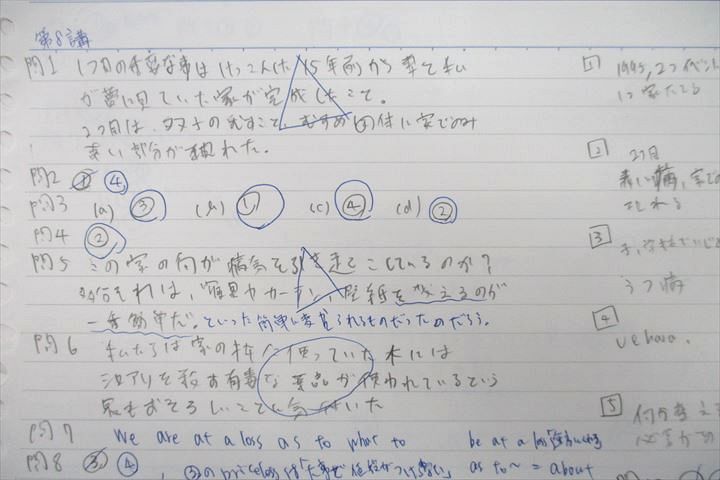 第8講
問1 1つ目の重要な事は けっこんした 15年前から 妻と私
が夢に見ていた家が完成したこと。
2つ目は、双子のむすこと、むすめの体に家でのみ
赤い部分が現れた。
問2 ① ④
問3 (a) ③ (b) ① (c) ④ (d) ②
問4 ②
問5 この家の何が病気を引き起こしているのか?
多分それは、寝具やカーテン、壁紙を変えるのが
一番簡単だ。といった簡単に変えられるものだったのだろう。
問6 私たちは家の枠に使っていた木には
シロアリを殺す有毒な薬品が使われているという
最もおそろしいことに気付いた
問7 We are at a loss as to what to
be at a loss
問8 ③ ④ , ③のpricelessは「大事で値段がつけられない」
as to~ = about
1 1995, 2つ
に家たてる
2 2つ目
赤い
3
うつ病
4
Uehara.
5 何を変える